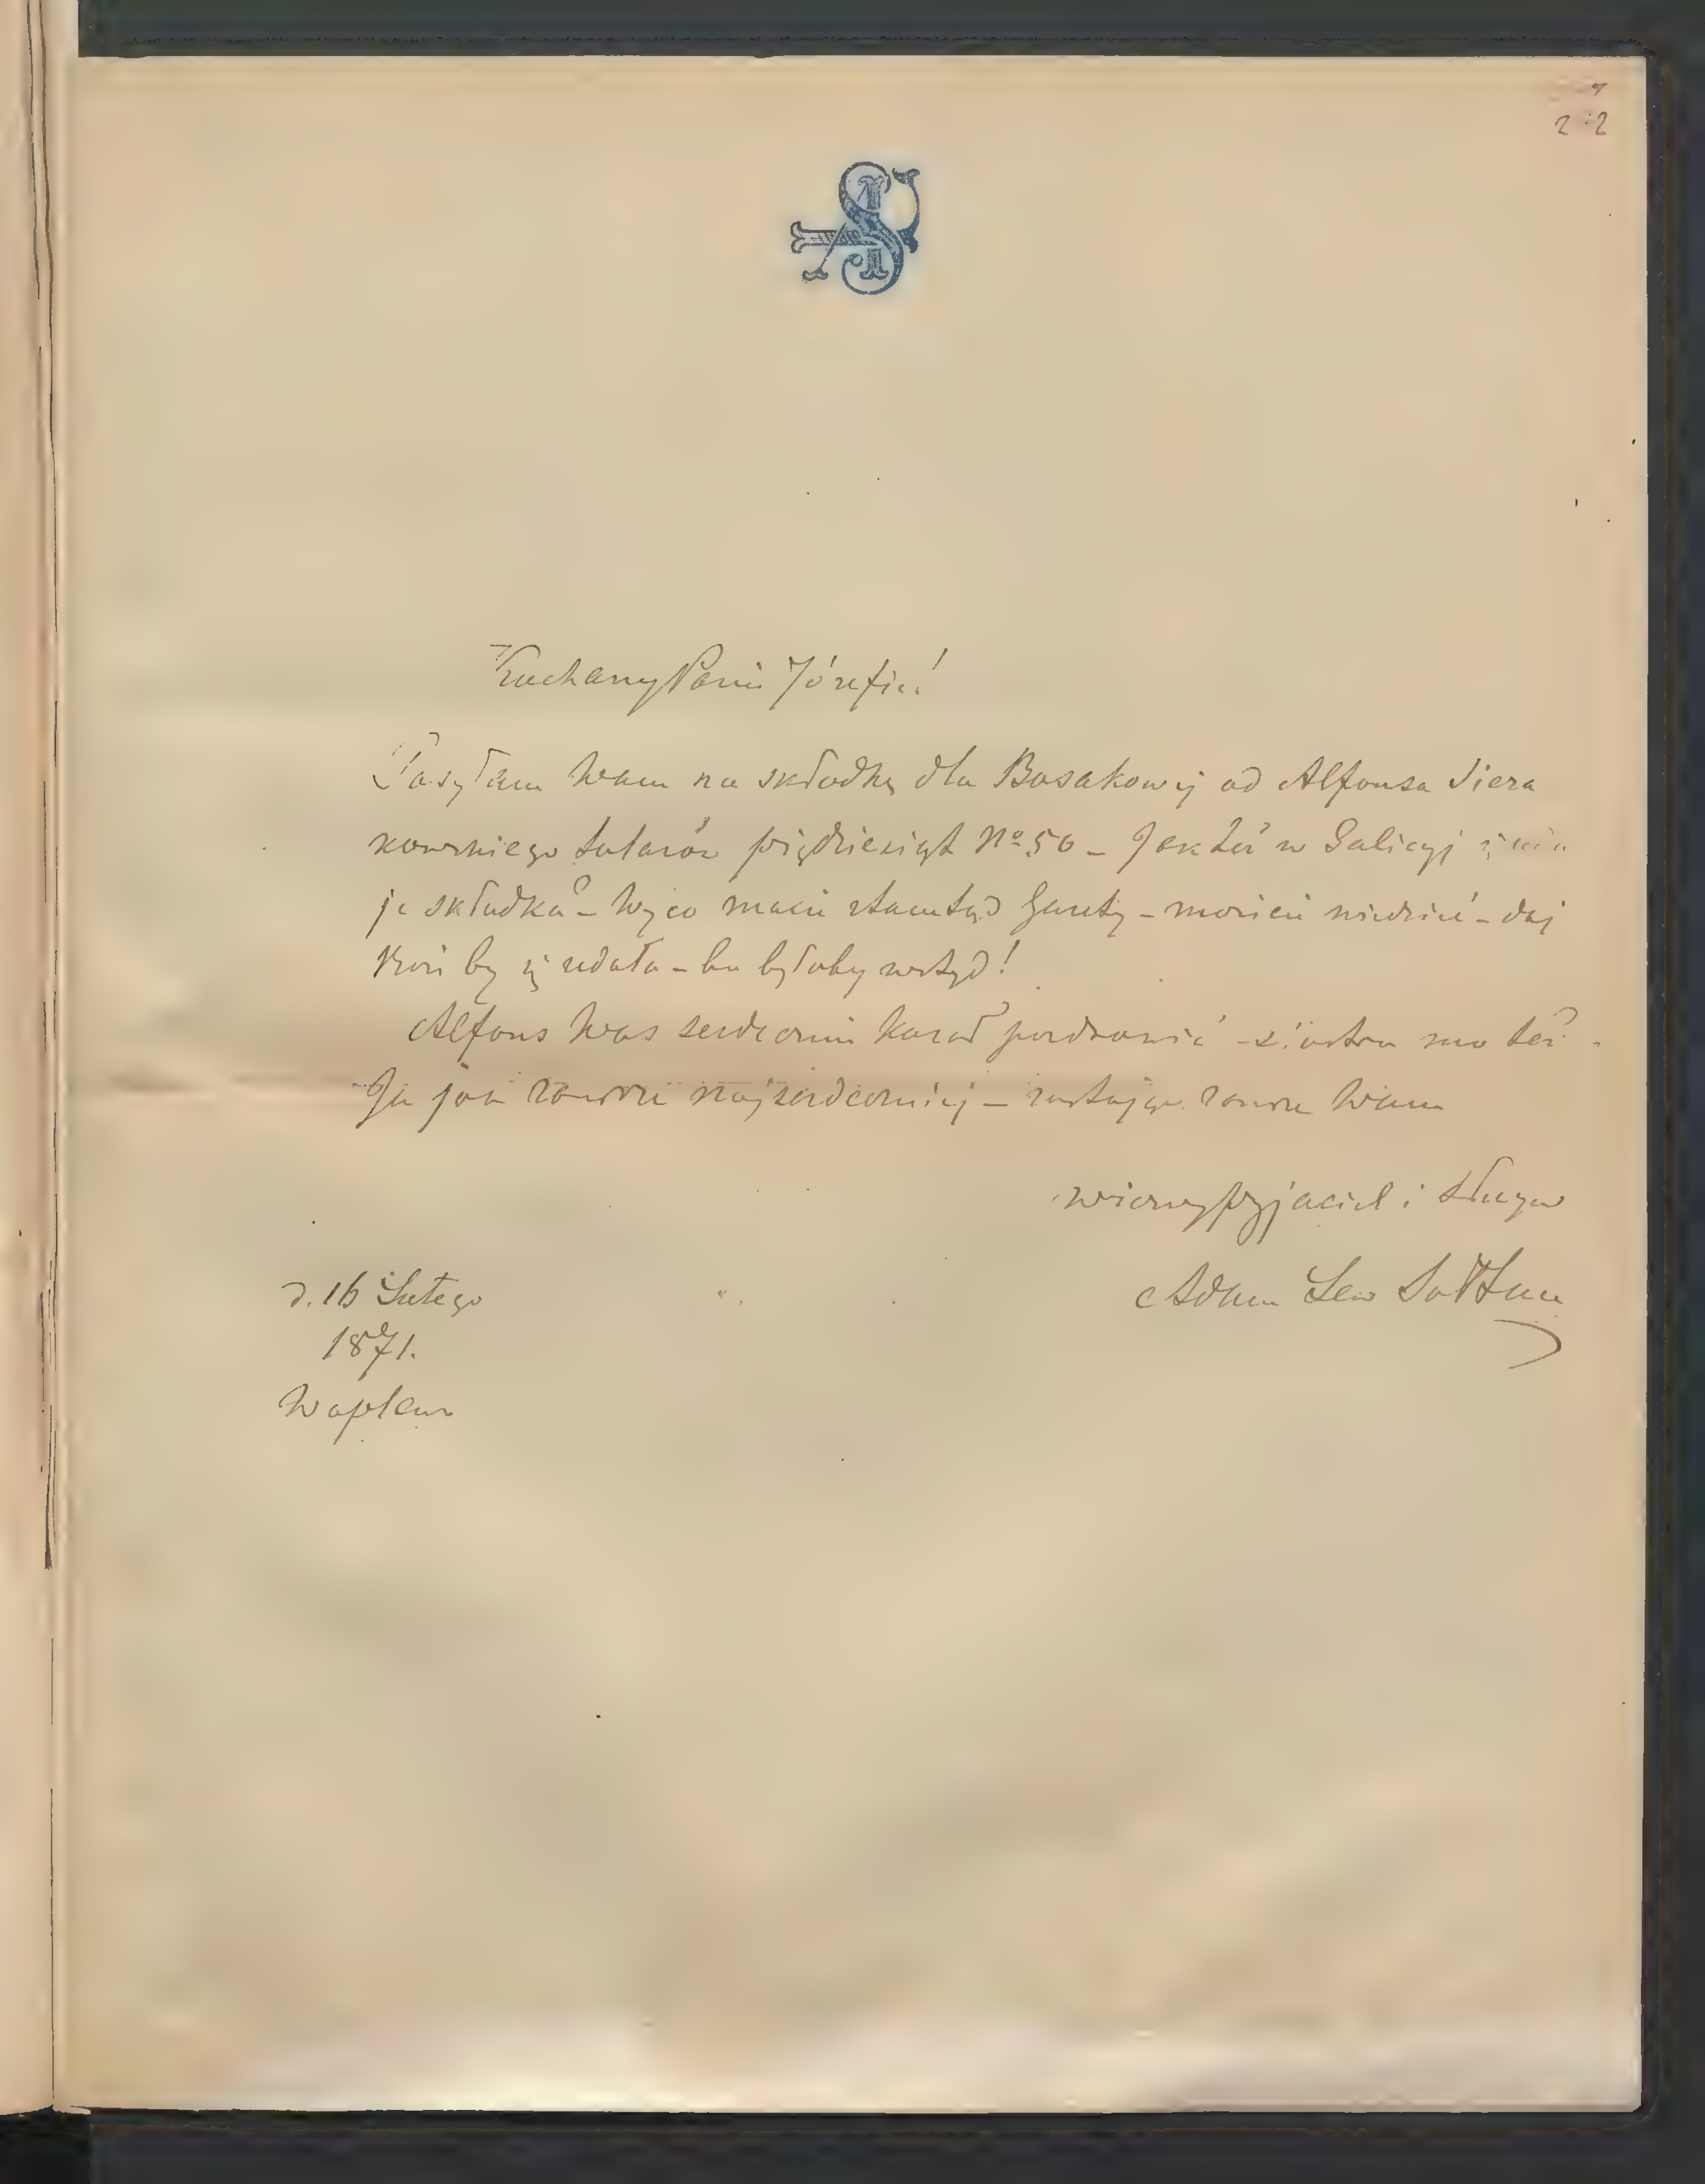 22
Kochany Panie Józefie!
Posyłam Wam na składkę dla Bosakowej od Alfonsa Siera
kowskiego talarów pięćdziesiąt No 50 – Jak też w Galicyj
je składka? – Wy co macie ztamtąd Gazety – możecie wiedzieć – daj
Boże by się udała – bo byłoby wstyd!
Alfons Was serdecznie kazał pozdrowić – siostra ma też.
Ja jak zawsze najserdeczniej – zostając zawsze Wam
wierny przyjaciel i sługa
Adam Lew Sołtan
d. 16 Lutego
1871.
Waplewo